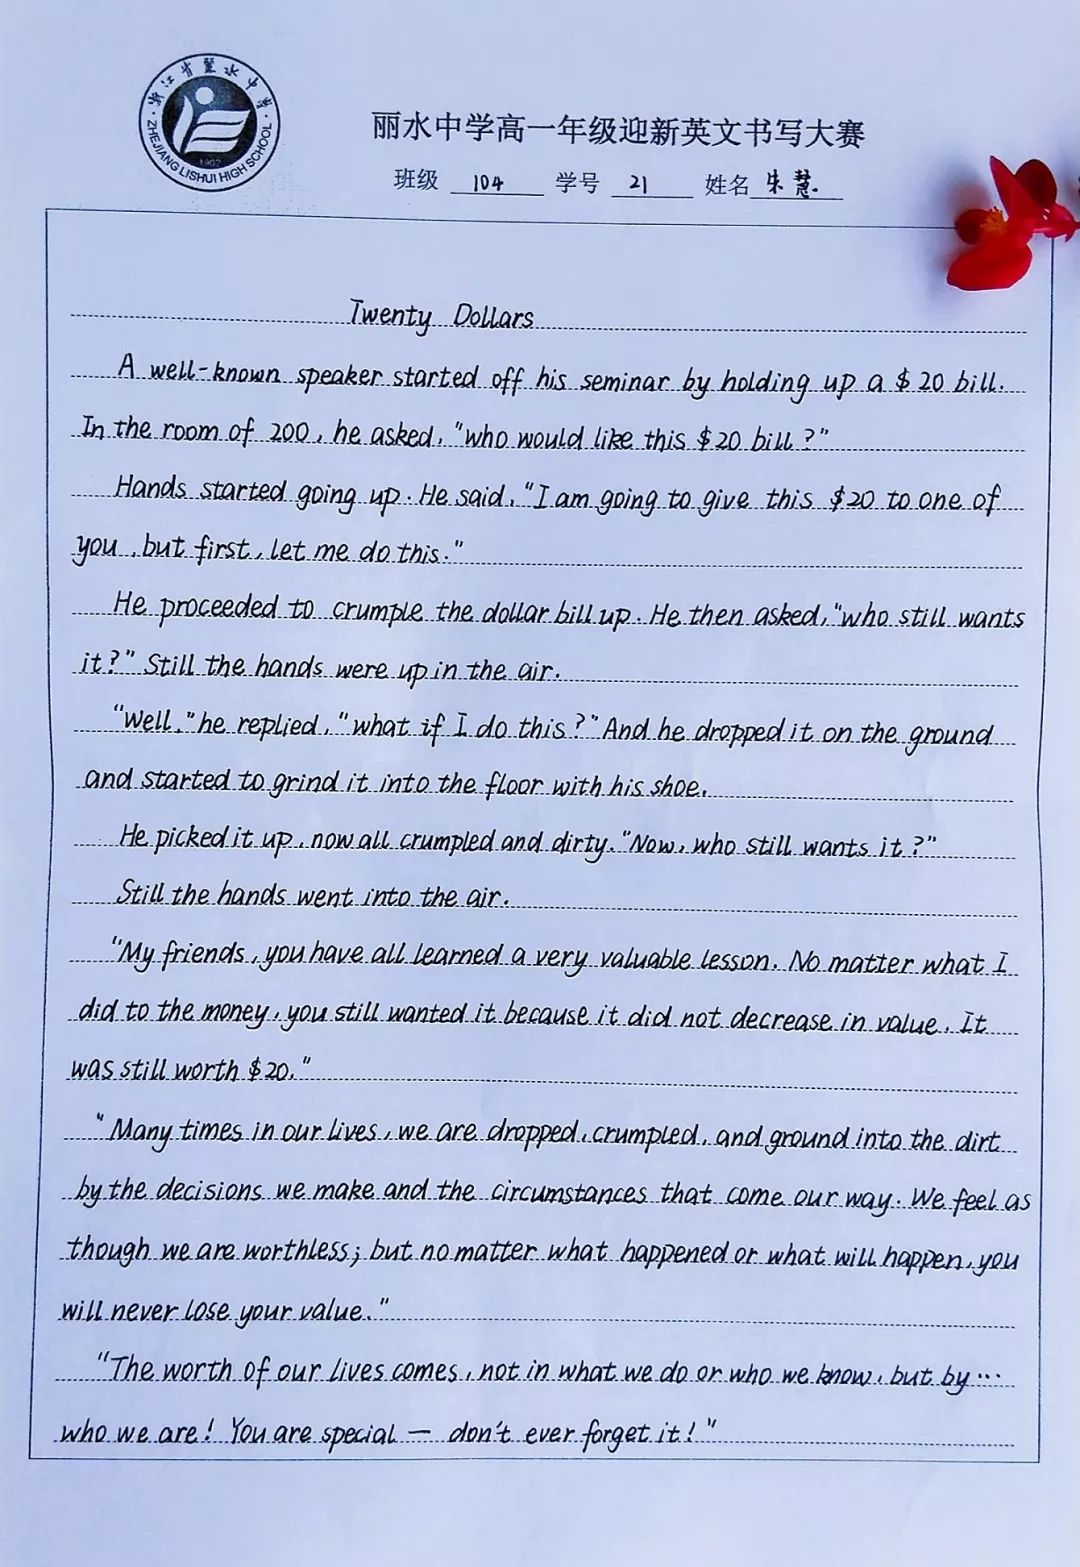 浙江省丽水中学
ZHEJIANG LISHUI HIGH SCHOOL
1902
丽水中学高一年级迎新英文书写大赛
班级 104 学号 21 姓名 朱慧
Twenty Dollars
A well-known speaker started off his seminar by holding up a $20 bill.
In the room of 200, he asked, "who would like this $20 bill?"
Hands started going up. He said, "I am going to give this $20 to one of
you, but first, let me do this."
He proceeded to crumple the dollar bill up. He then asked, "who still wants
it?" Still the hands were up in the air.
"Well," he replied, "what if I do this?" And he dropped it on the ground
and started to grind it into the floor with his shoe.
He picked it up, now all crumpled and dirty. "Now, who still wants it?"
Still the hands went into the air.
"My friends, you have all learned a very valuable lesson. No matter what I
did to the money, you still wanted it because it did not decrease in value. It
was still worth $20."
"Many times in our lives, we are dropped, crumpled, and ground into the dirt
by the decisions we make and the circumstances that come our way. We feel as
though we are worthless; but no matter what happened or what will happen, you
will never lose your value."
"The worth of our lives comes, not in what we do or who we know, but by ...
who we are! You are special — don't ever forget it!"